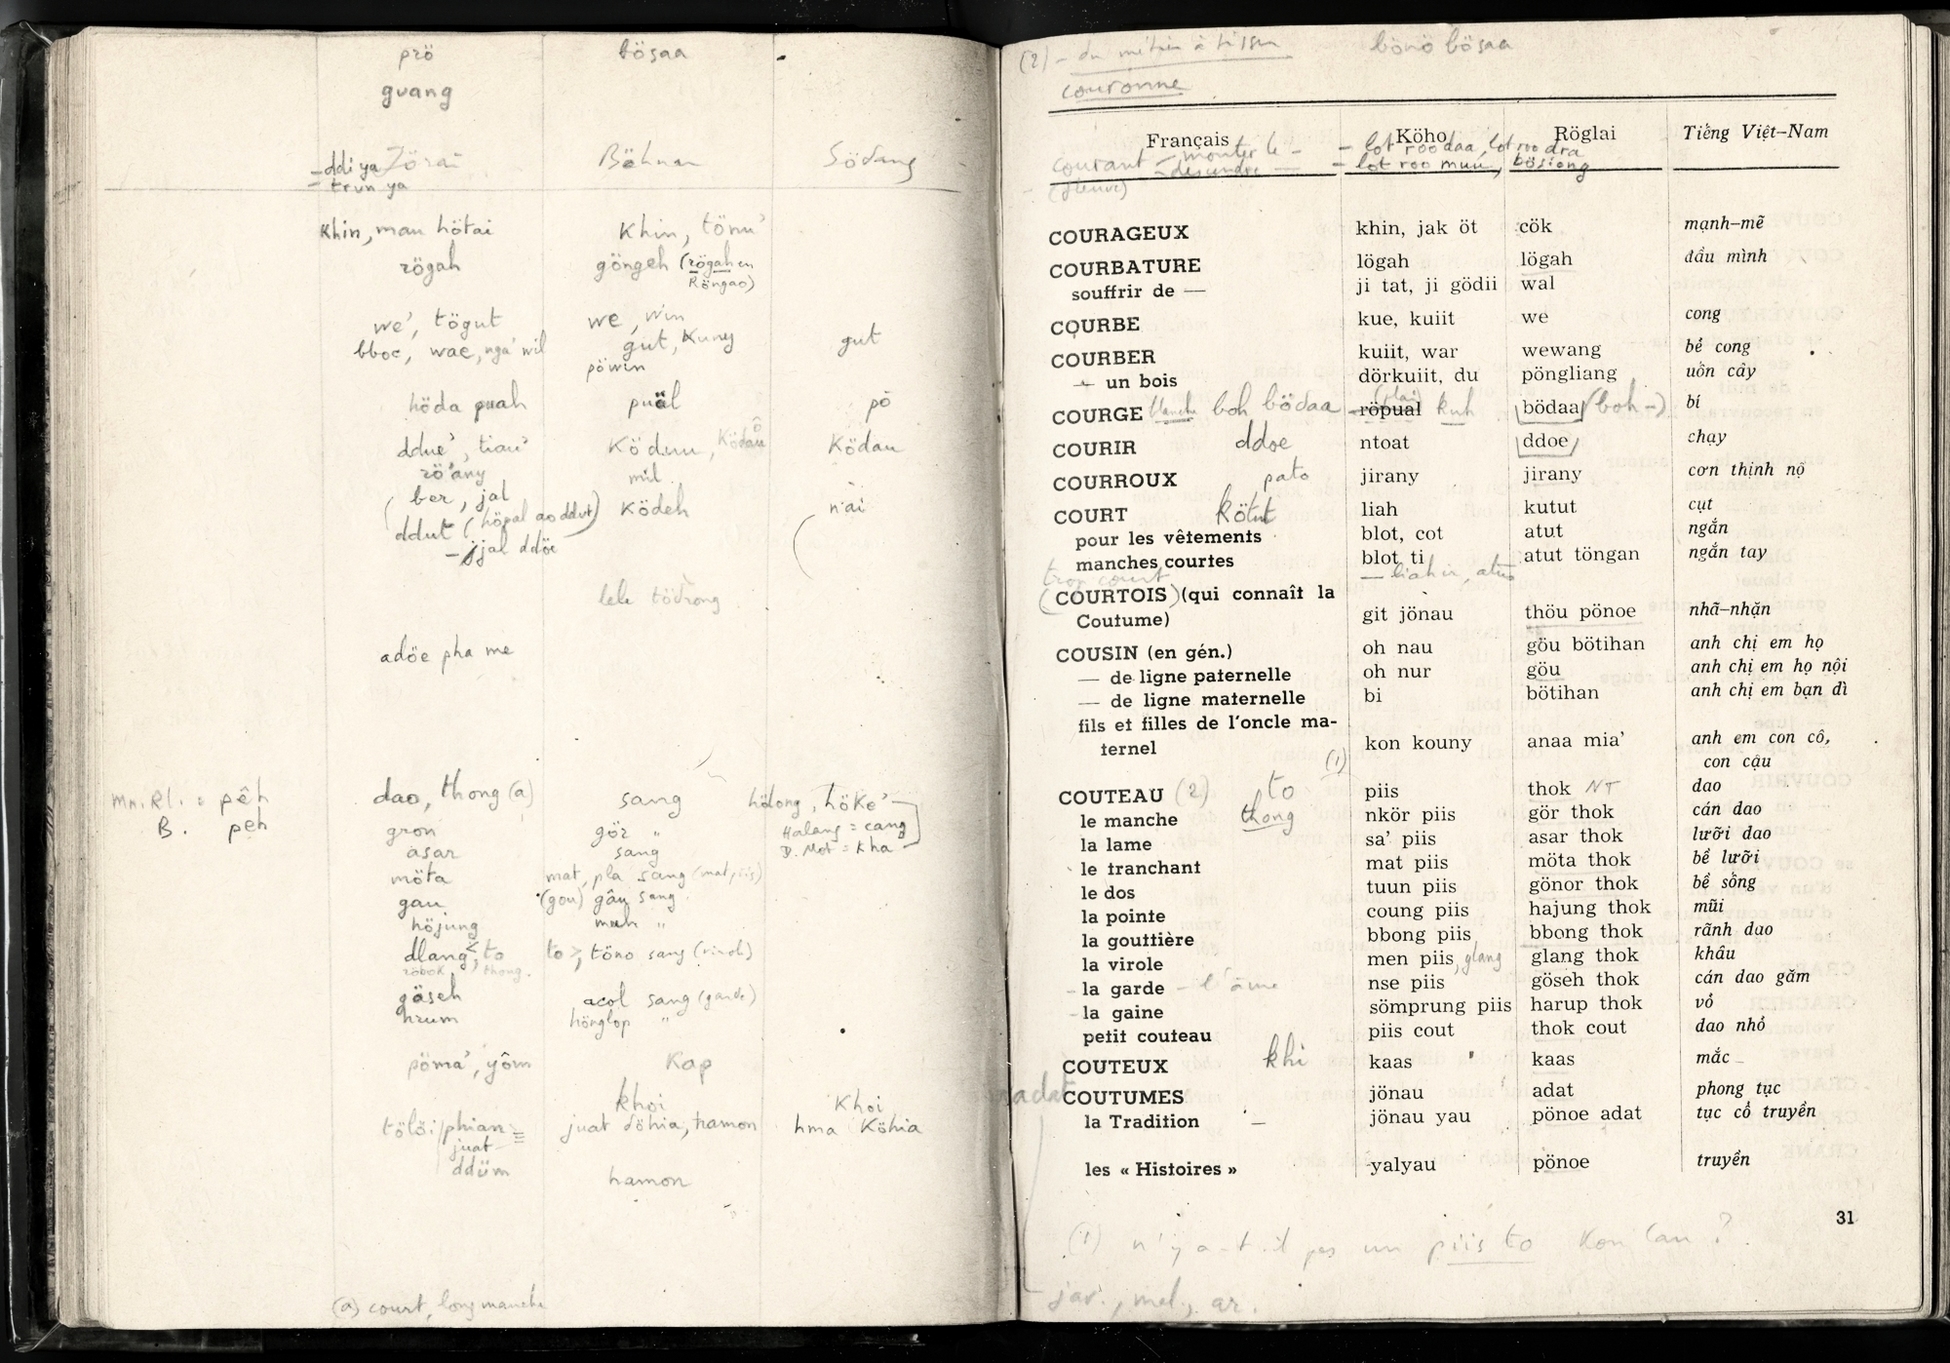 prö bösaa
guang
-ddi ya Jörai Böhnar Södang
- trun ya
Khin, man hötai Khin, tönu'
rögah göngeh (rögah en
Röngao)
we', tögut we, win
bboc, wae, nga' wil gut, Kuny gut
pöwin
höda puah puäl pö
ddue', tiau' Köduu, Ködau Ködau
rö'any mil
(ber, jal Ködeh n'ai
ddut (höpal ao ddut)
- jal ddöe
lele tödrong
adöe pha me
Mn. Rl. : pêh dao, thong (a) sang hölong, höke'
B. peh gron gör " Halang = cang
asar sang D. Mot = kha
möta mat, pla sang (mat piis)
gau (gou) gâu sang
höjung muh "
dlang, to to, töno sang
röbok, thong.
göseh acol sang (garde)
hrum hönglop "
pöma', yôm Kap
khoi Khoi
tölöi phian juat döhia, hamon hma Köhia
juat
ddüm hamon
(a) court, long manche
(2) - du métier à tisser bönö bösaa
couronne
Français Köho Röglai Tiếng Việt-Nam
courant - monter le - - lot roo daa, lot roo dra
- descendre — - lot roo muu, bösiong
(fleuve)
COURAGEUX khin, jak öt cök mạnh-mẽ
COURBATURE lögah lögah đầu mình
souffrir de — ji tat, ji gödii wal
COURBE kue, kuiit we cong
COURBER kuiit, war wewang bẻ cong
— un bois dörkuiit, du pöngliang uốn cây
COURGE blanche boh bödaa röpual (plai) kuh bödaa (boh -) bí
COURIR ddoe ntoat ddoe chạy
COURROUX pato jirany jirany cơn thịnh nộ
COURT kötut liah kutut cụt
pour les vêtements blot, cot atut ngắn
manches courtes blot ti atut töngan ngắn tay
trop court - liah ir, atut
(COURTOIS) (qui connaît la
Coutume) git jönau thöu pönoe nhã-nhặn
COUSIN (en gén.) oh nau göu bötihan anh chị em họ
— de ligne paternelle oh nur göu anh chị em họ nội
— de ligne maternelle bi bötihan anh chị em bạn dì
fils et filles de l'oncle ma-
ternel kon kouny anaa mia' anh em con cô,
con cậu
(1)
COUTEAU (2) to piis thok NT dao
le manche thong nkör piis gör thok cán dao
la lame sa' piis asar thok lưỡi dao
le tranchant mat piis möta thok bề lưỡi
le dos tuun piis gönor thok bề sống
la pointe coung piis hajung thok mũi
la gouttière bbong piis bbong thok rãnh dao
la virole men piis, glang glang thok khâu
- la garde - l'âme nse piis göseh thok cán dao găm
- la gaine sömprung piis harup thok vỏ
petit couteau piis cout thok cout dao nhỏ
COUTEUX khi kaas kaas mắc
adat COUTUMES jönau adat phong tục
la Tradition — jönau yau pönoe adat tục cổ truyền
les « Histoires » yalyau pönoe truyền
31
(1) n'y a-t-il pas un piis to Kon Lan ?
jar., mal., ar.